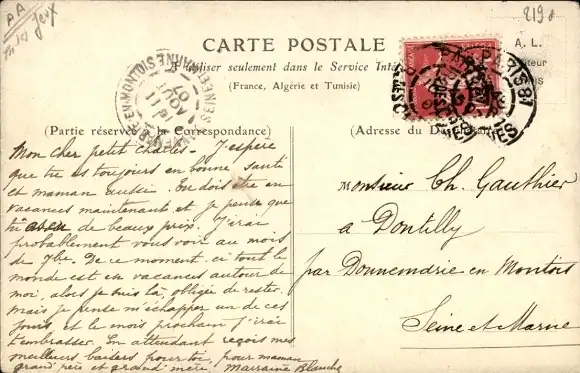 PA
Th des Jeux
2198
CARTE POSTALE
A utiliser seulement dans le Service Inté
(France, Algérie et Tunisie)
A. L.
diteur
(Partie réservée à la Correspondance)
(Adresse du Destinataire)
SEINE-ET-MARNE
EN-MONTOIS
PARIS 81
Mon cher petit Charles - J'espère
que tu es toujours en bonne santé
et maman aussi. Tu dois être en
vacances maintenant et je pense que
tu as eu de beaux prix. J'irai
probablement vous voir au mois
de 7bre. De ce moment ci tout le
monde est en vacances autour de
moi, alors je suis là, obligée de rester.
mais je pense m'échapper un de ces
jours, et le mois prochain j'irai
t'embrasser. En attendant reçois mes
meilleurs baisers pour toi, pour maman
grand père et grand mère. Marraine Blanche
Monsieur Ch. Gauthier
a Dontilly
par Donnemdrie en Montois
Seine et Marne